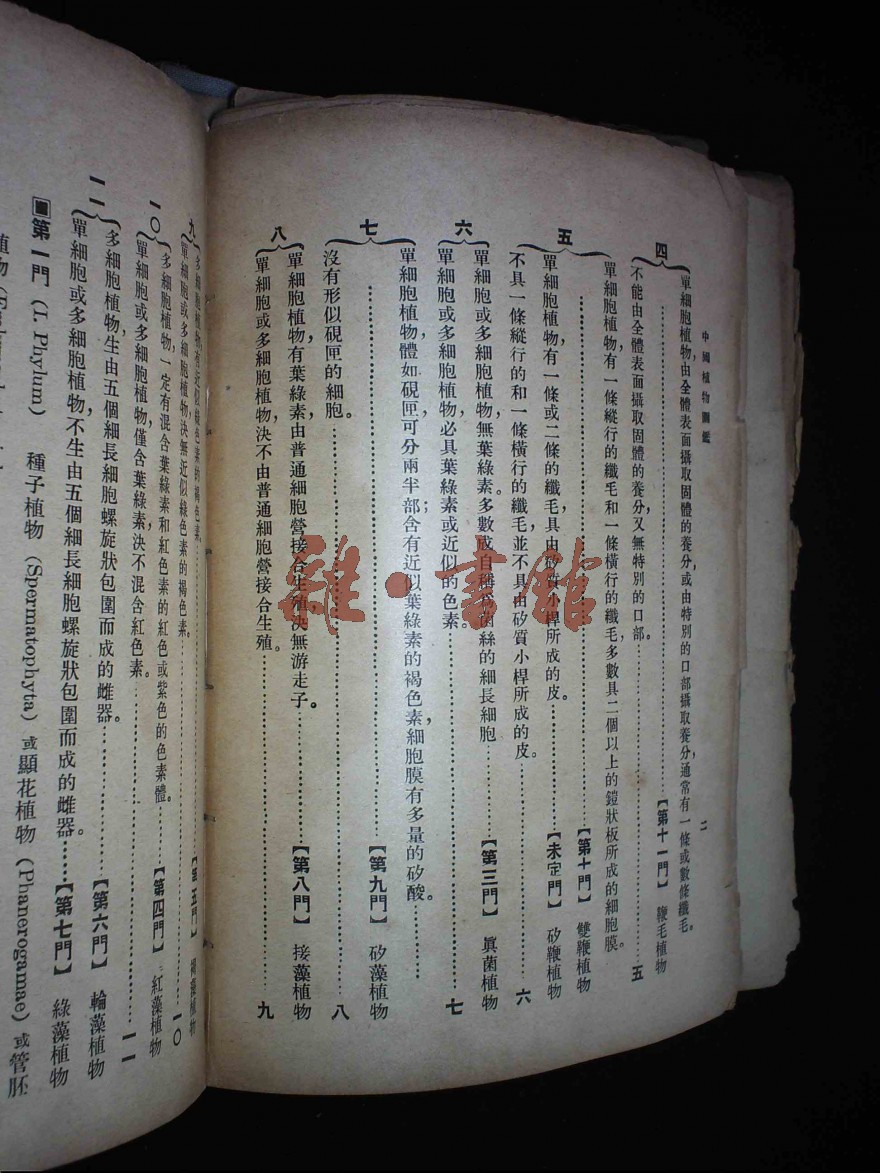 中國植物圖鑑
二
四
單細胞植物,由全體表面攝取固體的養分,或由特別的口部攝取養分,通常有一條或數條纖毛。
【第十一門】 鞭毛植物
不能由全體表面攝取固體的養分,又無特別的口部。
五
五
單細胞植物,有一條縱行的纖毛和一條橫行的纖毛,多數具二個以上的鎧狀板所成的細胞膜。
【第十門】 雙鞭植物
單細胞植物有一條或二條的纖毛,具由矽質小桿所成的皮。
【未定門】 矽鞭植物
不具一條縱行的和一條橫行的纖毛,並不具由矽質小桿所成的皮。
六
六
單細胞或多細胞植物,無葉綠素。多數成自稱為菌絲的細長細胞
【第三門】 眞菌植物
單細胞或多細胞植物,必具葉綠素或近似的色素。
七
七
單細胞植物,體如硯匣,可分兩半部;含有近似葉綠素的褐色素,細胞膜有多量的矽酸。
【第九門】 矽藻植物
沒有形似硯匣的細胞。
八
八
單細胞植物有葉綠素,由普通細胞營接合生殖,決無游走子。
【第八門】 接藻植物
單細胞或多細胞植物,決不由普通細胞營接合生殖。
九
九
【第五門】
單細胞或多細胞植物,決無近似綠色素的褐色素。
一〇
一〇
多細胞植物,一定有混含葉綠素和紅色素的紅色或紫色的色素體。
【第四門】 紅藻植物
單細胞或多細胞植物,僅含葉綠素,決不混含紅色素。
一一
一一
多細胞植物,生由五個細長細胞螺旋狀包圍而成的雌器。
【第六門】 輪藻植物
單細胞或多細胞植物,不生由五個細長細胞螺旋狀包圍而成的雌器。
【第七門】 綠藻植物
▣第一門 (I. Phylum) 種子植物 (Spermatophyta) 或顯花植物 (Phanerogamae) 或管胚
雜·書館